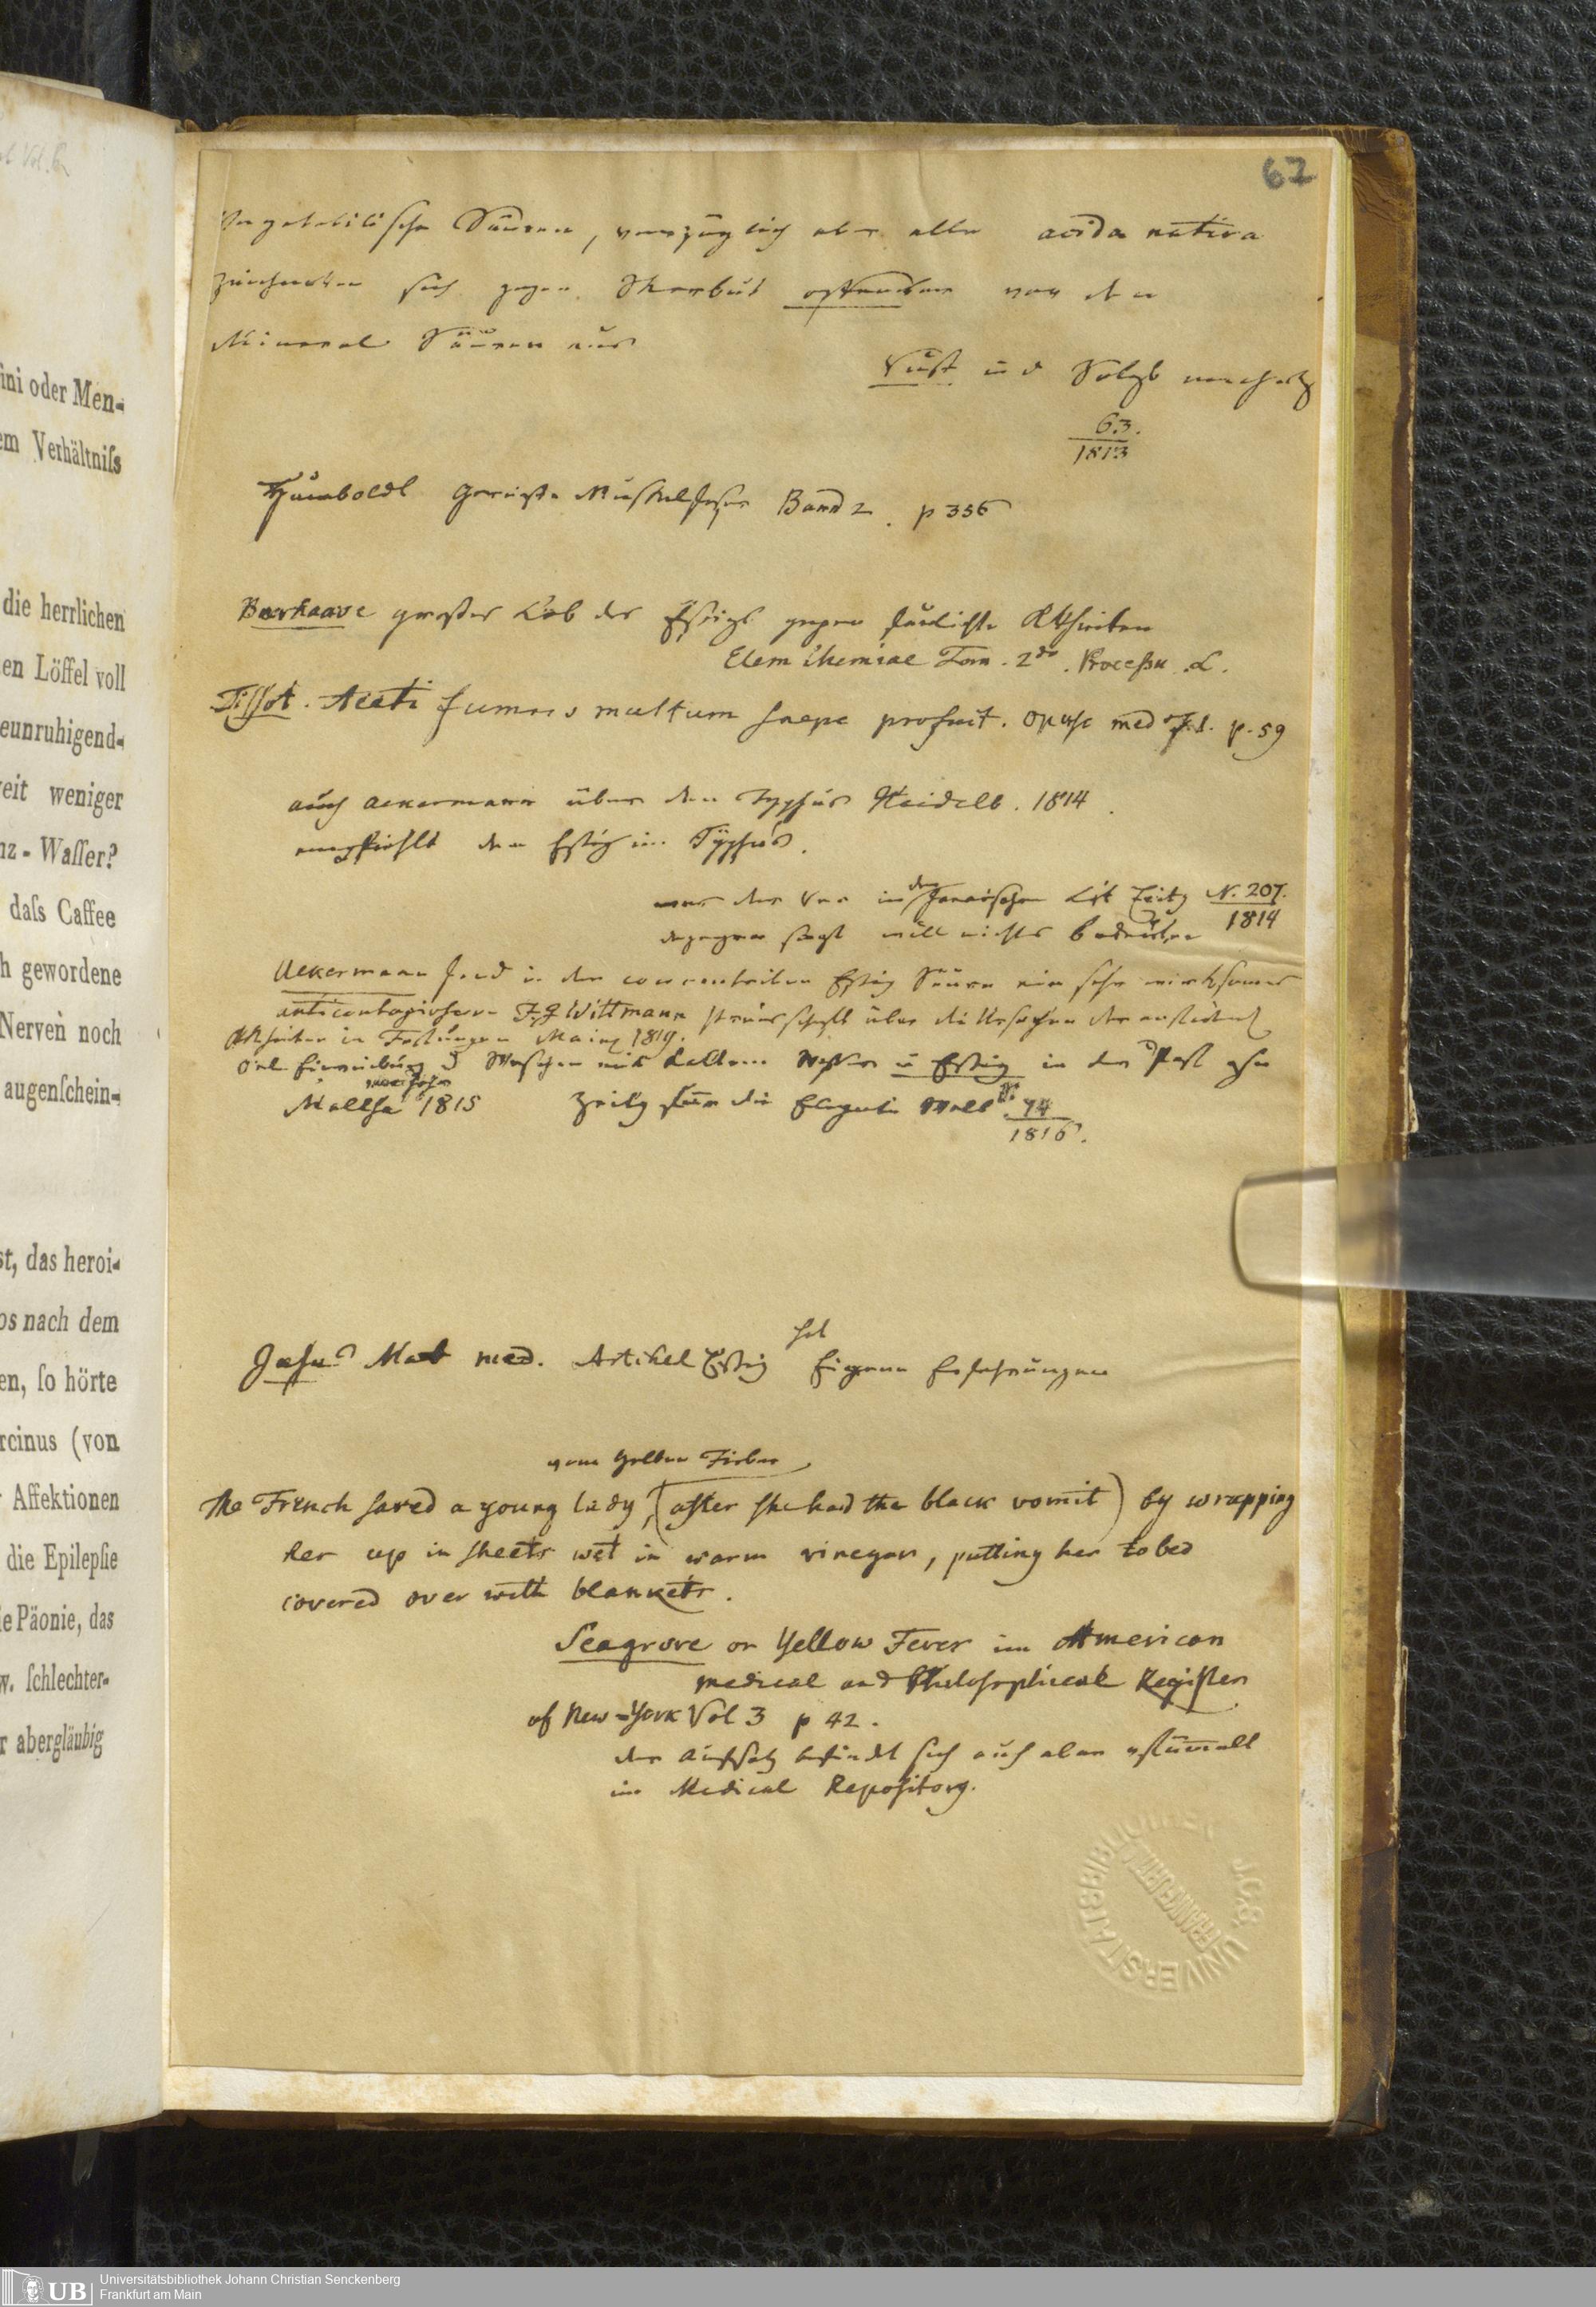 62
Vegetabilische Säuren, vorzüglich aber alle acida nativa
zeichneten sich gegen Skorbut offenbar vor den
Mineral Säuren aus
Rust in d Salzb
63.
1813
Humboldt Gereizte Muskelfaser Band 2. p 336
Boerhaave großes Lob des Essigs gegen
Elem Chemiae Tom. 2do. Processu L.
Tissot. Aceti fumus multum saepe profuit. Opusc med T. 1. p. 59
auch Ackermann über den Typhus Heidelb. 1814.
empfiehlt den Essig im Typhus.
was der in der Jenaischen Lit Zeitg N. 207.
1814
dagegen sagt will nichts bedeuten
Ackermann fand in der concentrirten Essig Säure ein sehr wirksames
anticontagiosum F. G Wittmann über die Ursachen der ansteckend
Kkheiten in Festungen Mainz 1819.
Oel Einreibung Waschen mit kaltem Wasser u Essig in der Pest
Maltha 1815 Zeitg für die Elegante Welt N. 74
1816.
Jahn Mat med. Artikel Essig hat Eigene Erfahrungen
vom gelben Fieber
The French saved a young lady, (after she had the black vomit) by wrapping
her up in sheets wet in warm vinegar, putting her to bed
covered over with blankets.
Seagrove on Yellow Fever im American
medical and Philosophical Register
of New-York Vol 3 p 42.
der Aufsatz befindet sich auch aber
im Medical Repository.
UNIVERSITÄTSBIBLIOTHEK
FRANKFURT
ini oder Men-
em Verhältniſs
die herrlichen
en Löffel voll
eunruhigend-
eit weniger
nz-Waſſer?
daſs Caffee
h gewordene
Nerven noch
augenſchein-
st, das heroi-
os nach dem
en, ſo hörte
rcinus (von
Affektionen
die Epilepſie
ie Päonie, das
w. ſchlechter-
r abergläubig
UB
Universitätsbibliothek Johann Christian Senckenberg
Frankfurt am Main